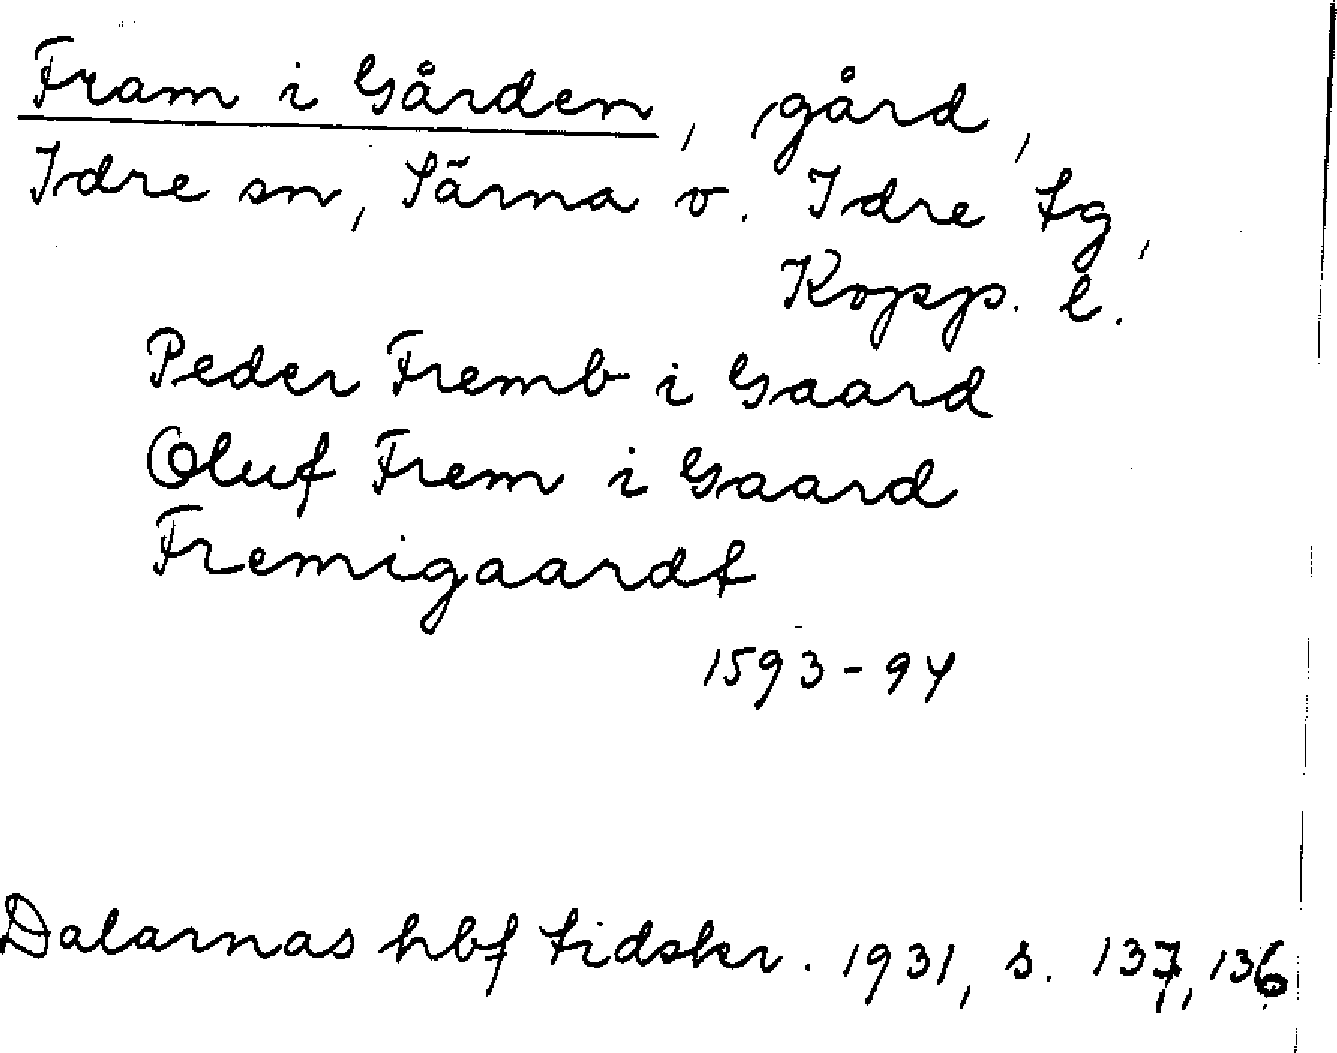 Fram i Gården, gård,
Idre sn, Särna o. Idre tg,
Kopp. l.
Peder Fremb i Gaard
Oluf Frem i Gaard
Fremigaardt
1593-94
Dalarnas hbf tidskr. 1931, s. 137, 136